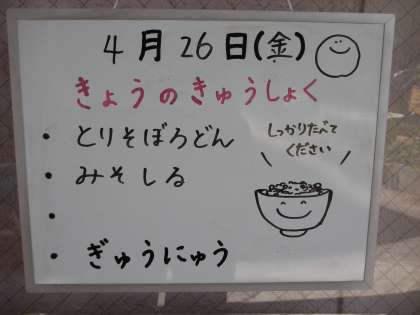 4月26日(金)
きょうのきゅうしょく
・とりそぼろどん
・みそしる
・
・ぎゅうにゅう
しっかりたべて
ください